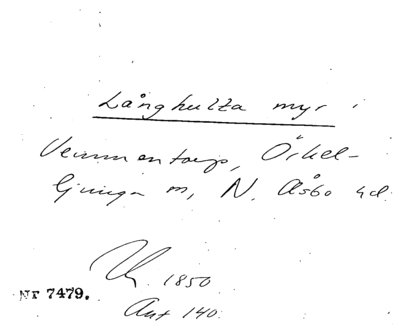 Långhulta myr
Vemmentorp, Örkel-
ljunga m, N. Åsbo hd.
1850
Nr 7479.
Ant 140.